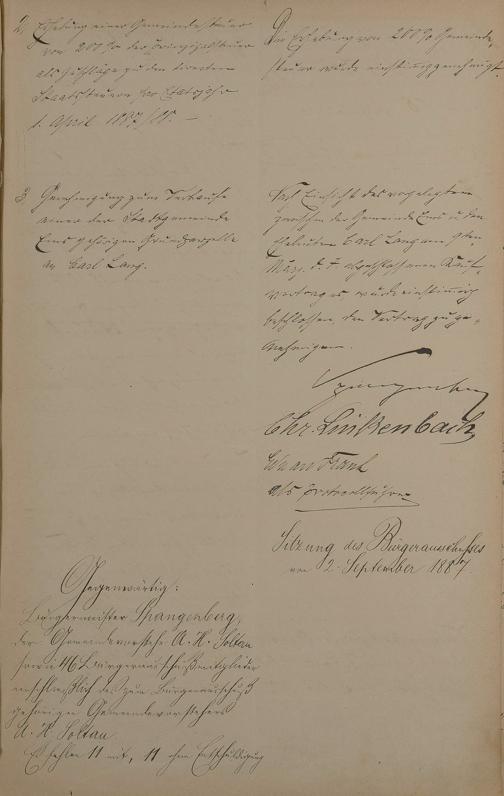 2, Erhebung einer Gemeindesteuer
von 200 % der
als Zuschläge zu den direkten
Staatssteuern pro Etatsjahr
1. April 1887/88. –
Die Erhebung von 200 % Gemeinde-
steuer wurde einstimmig genehmigt
3, Genehmigung zum Verkaufe
einer der Stadtgemeinde
Ems gehörigen Grundparzelle
an Carl Lang.
Nach Einsicht des vorgelegten
zwischen der Gemeinde Ems u den
Eheleuten Carl Lang am 9ten
März d. J. abgeschlossenen Kauf-
vertrages, wurde einstimmig
beschlossen, den Vertrag zu ge-
nehmigen.
Spangenberg
Chr. Linkenbach
als Protocollführer
Sitzung des Bürgerausschusses
von 2. September 1887
Gegenwärtig:
Bürgermeister Spangenberg,
der Gemeindevorsteher A. H. Soltau
sowie 46 Bürgerausschußmitglieder
einschließlich des zum Bürgerausschuß
gehörigen Gemeindevorstehers
A. H. Soltau.
Es fehlen 11 mit, 11 ohne Entschuldigung